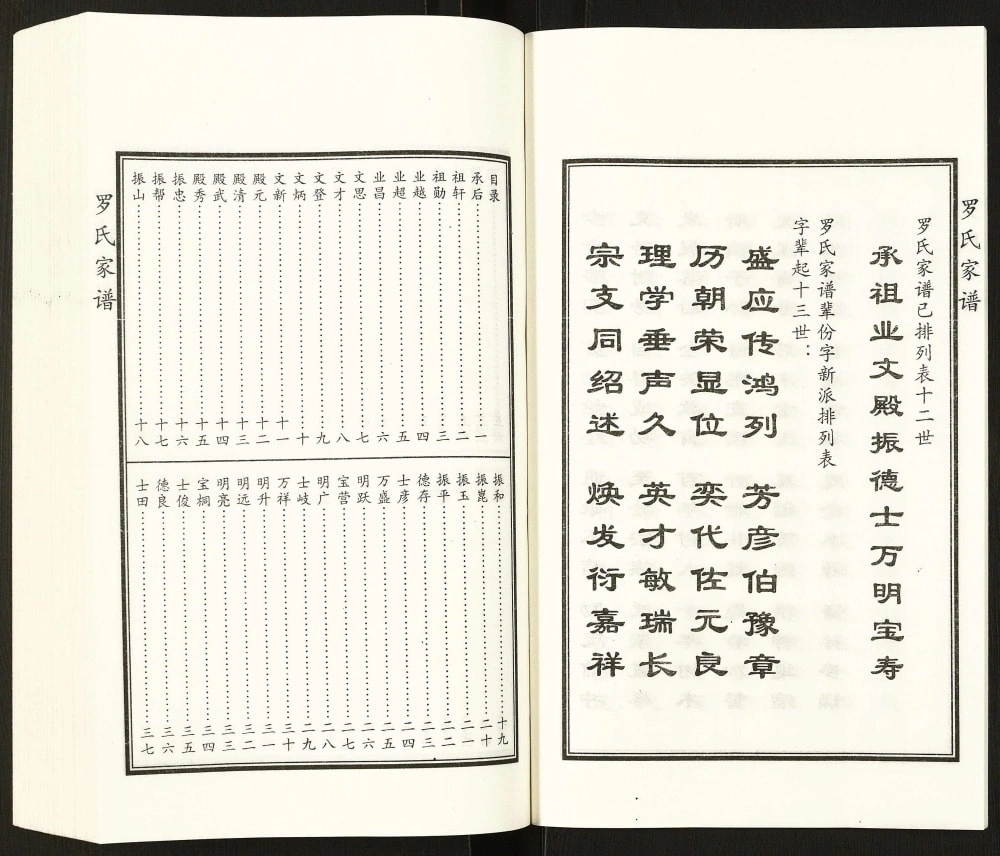 罗氏家谱
罗氏家谱已排列表十二世
承祖业文殿振德士万明宝寿
罗氏家谱辈份字新派排列表
字辈起十三世：
盛应传鸿列 芳彦伯豫章
历朝荣显位 奕代佐元良
理学垂声久 英才敏瑞长
宗支同绍述 焕发衍嘉祥
目录
承后……一
祖轩……二
祖勋……三
业越……四
业超……五
业昌……六
文思……七
文才……八
文登……九
文炳……十
文新……十一
殿元……十二
殿清……十三
殿武……十四
殿秀……十五
振忠……十六
振帮……十七
振山……十八
振和……十九
振崑……二十
振玉……二一
振平……二二
德存……二三
士彦……二四
万盛……二五
明跃……二六
宝营……二七
明广……二八
士岐……二九
万祥……三十
明升……三一
明远……三二
明亮……三三
宝桐……三四
士俊……三五
德良……三六
士田……三七
罗氏家谱